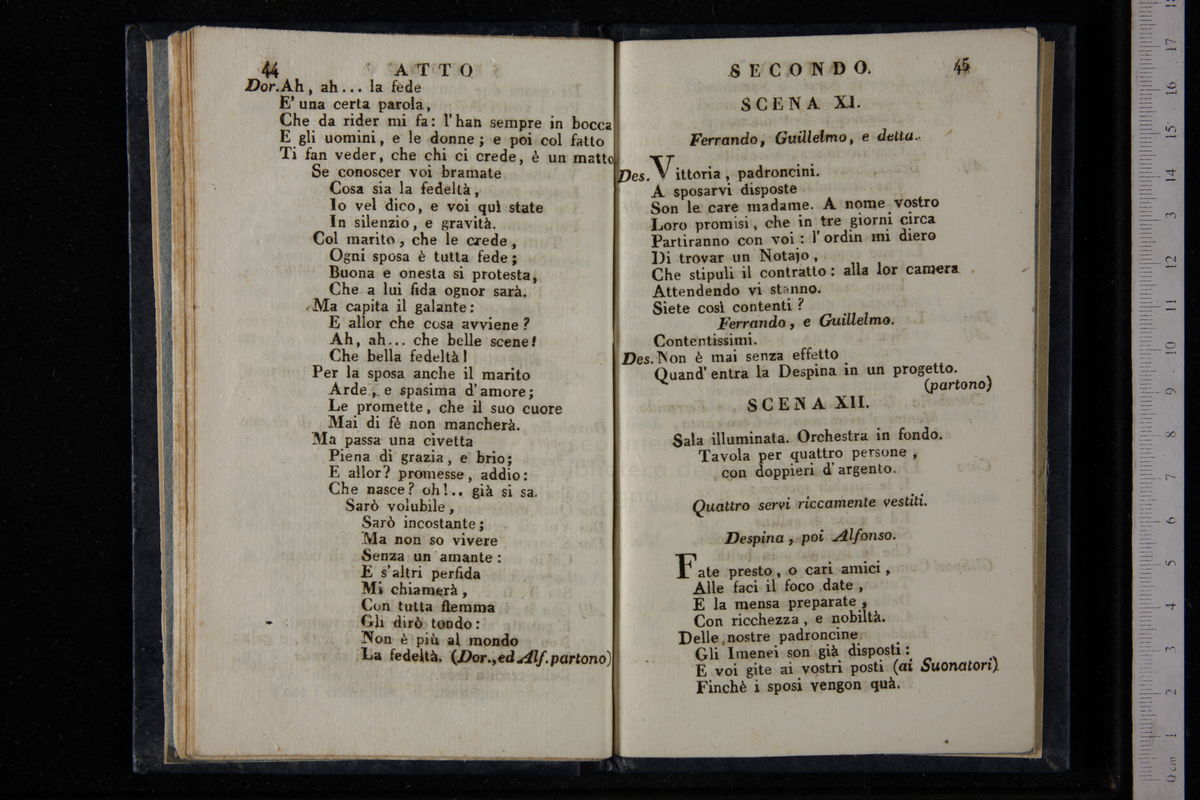 44 ATTO
Dor. Ah, ah... la fede
E' una certa parola,
Che da rider mi fa: l'han sempre in bocca
E gli uomini, e le donne; e poi col fatto
Ti fan veder, che chi ci crede, è un matto
Se conoscer voi bramate
Cosa sia la fedeltà,
Io vel dico, e voi quì state
In silenzio, e gravità.
Col marito, che le crede,
Ogni sposa è tutta fede;
Buona e onesta si protesta,
Che a lui fida ognor sarà.
Ma capita il galante:
E allor che cosa avviene?
Ah, ah... che belle scene!
Che bella fedeltà!
Per la sposa anche il marito
Arde, e spasima d'amore;
Le promette, che il suo cuore
Mai di fè non mancherà.
Ma passa una civetta
Piena di grazia, e brio;
E allor? promesse, addio:
Che nasce? oh!.. già si sa.
Sarò volubile,
Sarò incostante;
Ma non so vivere
Senza un amante:
E s'altri perfida
Mi chiamerà,
Con tutta flemma
Gli dirò tondo:
Non è più al mondo
La fedeltà. (Dor., ed Alf. partono)
SECONDO. 45
SCENA XI.
Ferrando, Guillelmo, e detta.
Des. Vittoria, padroncini.
A sposarvi disposte
Son le care madame. A nome vostro
Loro promisi, che in tre giorni circa
Partiranno con voi: l'ordin mi diero
Di trovar un Notajo,
Che stipuli il contratto: alla lor camera
Attendendo vi stanno.
Siete così contenti?
Ferrando, e Guillelmo.
Contentissimi.
Des. Non è mai senza effetto
Quand'entra la Despina in un progetto.
(partono)
SCENA XII.
Sala illuminata. Orchestra in fondo.
Tavola per quattro persone,
con doppieri d'argento.
Quattro servi riccamente vestiti.
Despina, poi Alfonso.
Fate presto, o cari amici,
Alle faci il foco date,
E la mensa preparate,
Con ricchezza, e nobiltà.
Delle nostre padroncine
Gli Imenei son già disposti:
E voi gite ai vostri posti (ai Suonatori)
Finchè i sposi vengon quà.
0 cm 1 2 3 4 5 6 7 8 9 10 11 12 13 14 15 16 17